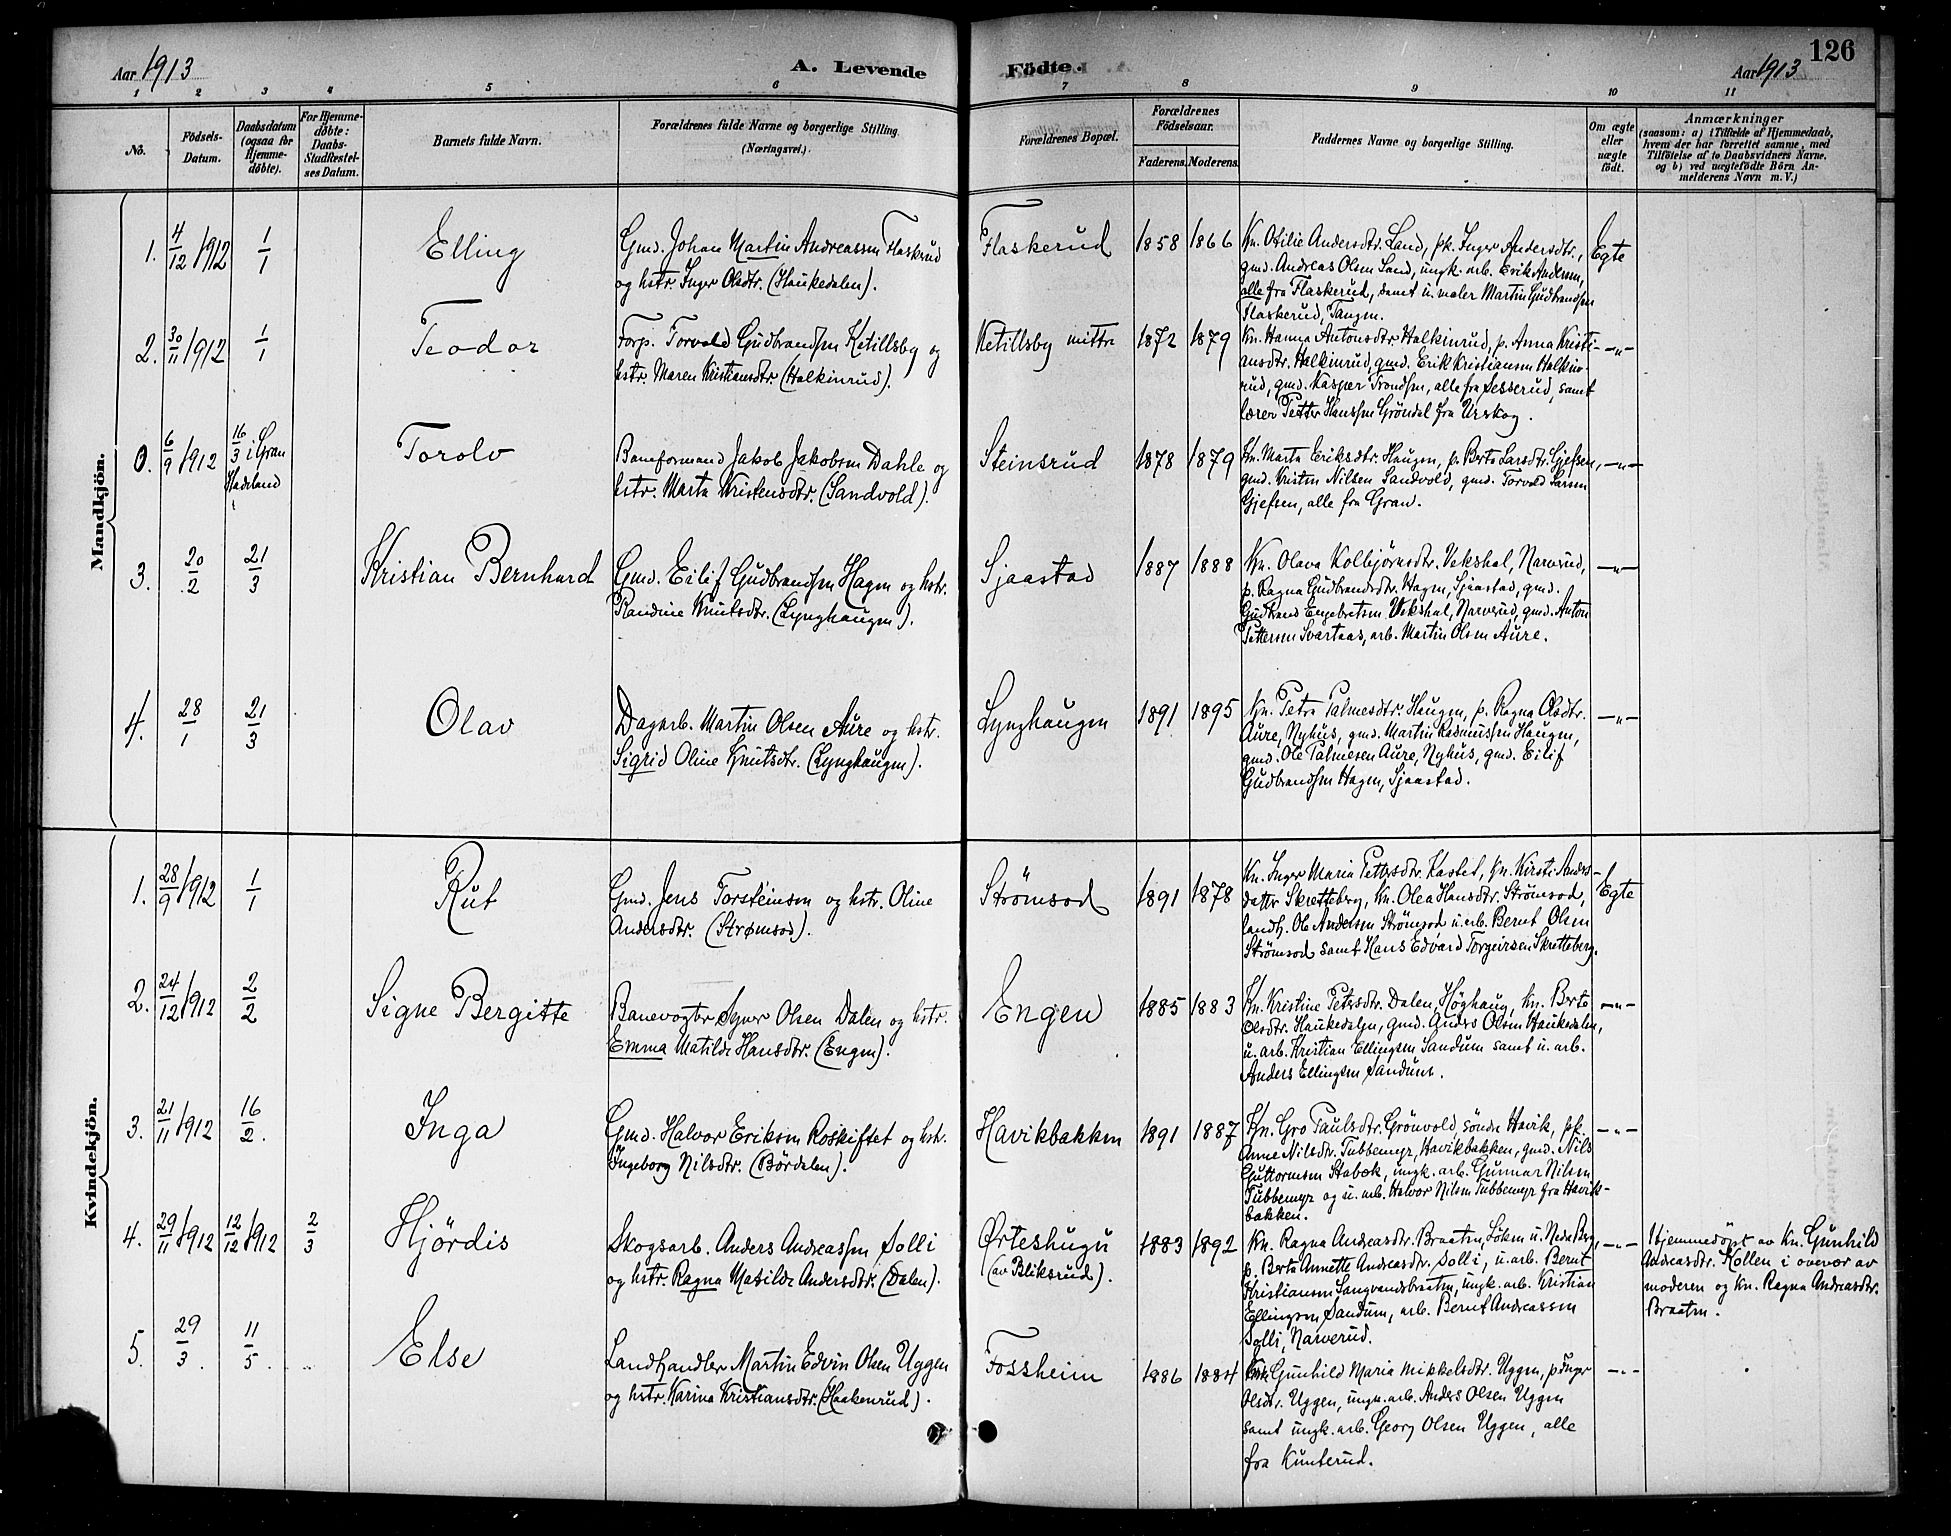 126
Aar 1913
A. Levende
Födte.
Aar 1913
1 2 3 4 5 6 7 8 9 10 11
No.
Födsels-
Datum.
Daabsdatum
(ogsaa for
Hjemme-
døbte).
For Hjemme-
døbte:
Daabs-
Stadfæstel-
ses Datum.
Barnets fulde Navn.
Forældrenes fulde Navne og borgerlige Stilling.
(Næringsvei.)
Forældrenes Bopæl.
Forældrenes
Födselsaar.
Faderens. Moderens.
Faddernes Navne og borgerlige Stilling.
Om ægte
eller
uægte
födt.
Anmærkninger
(saasom: a) i Tilfælde af Hjemmedaab,
hvem der har forrettet samme, med
Tilföielse af to Daabsvidners Navne,
og b) ved uægtefödte Börn An-
melderens Navn m. V.)
Mandkjön.
1. 4/12 1912 1/1 Elling
Gmd. Johan Martin Andreassen Flaskerud
og hstr. Inger Olsdtr. (Haukedalen).
Flaskerud 1858 1866
Kn. Otilie Andersdtr. Land, pk. Inger Andersdtr.,
gmd. Andreas Olsen Land, ungk. arb. Erik Andersen,
alle fra Flaskerud, samt u. maler Martin Gudbrandsen
Flaskerud, Tangen.
Egte
2. 30/11 1912 1/1 Teodor
Forp. Torvald Gudbrandsen Ketillsby og
hstr. Maren Kristiansdtr. (Halkinrud).
Ketillsby mittre 1872 1879
Kn. Hanna Antonsdtr Halkinrud, p. Anna Kristi-
ansdtr. Halkinrud, gmd. Erik Kristiansen Halkin-
rud, gmd. Kasper Trondsen, alle fra Sesserud, samt
lærer Petter Hanssen Gröndal fra Urskog.
—"—
0. 6/9 1912 16/3 i Gran
Hadeland
Torolv
Baneformand Jakob Jakobsen Dahle og
hstr. Marta Kristensdtr. (Sandvold).
Steinsrud 1878 1879
Kn. Marta Eriksdtr. Haugen, p. Berte Larsdtr. Gjefsen,
gmd. Kristen Nilsen Sandvold, gmd. Torvald Larsen
Gjefsen, alle fra Gran.
—"—
3. 20/2 21/3 Kristian Bernhard
Gmd. Eilif Gudbrandsen Hagen og hstr.
Randine Knutsdtr. (Lynghaugen).
Sjaastad 1887 1888
Kn. Olava Kolbjörnsdtr. Vekshal, Narverud,
p. Ragna Gudbrandsdtr. Hagen, Sjaastad, gmd.
Gudbrand Engebretsen Vekshal, Narverud, gmd. Anton
Pettersen Svartaas, arb. Martin Olsen Aure.
—"—
4. 28/1 21/3 Olav
Dagarb. Martin Olsen Aure og hstr.
Sigrid Oline Knutsdtr. (Lynghaugen).
Lynghaugen 1891 1895
Kn. Petra Palmesdtr. Haugen, p. Ragna Olsdtr.
Aure, Nyhus, gmd. Martin Rasmussen Haugen,
gmd. Ole Palmesen Aure, Nyhus, gmd. Eilif
Gudbrandsen Hagen, Sjaastad.
—"—
Kvindekjön.
1. 28/9 1912 1/1 Rut
Gmd. Jens Torsteinsen og hstr. Oline
Andersdtr. (Strømsod).
Strömsod 1891 1878
Kn. Inger Maria Pettersdtr. Kastet, kn. Kirsti Anders-
datter Skretteberg, kn. Olea Hansdtr. Strömsod,
landh. Ole Andersen Strömsod u. arb. Bernt Olsen
Strömsod samt Hans Edvard Torgeirsen Skretteberg.
Egte
2. 24/12 1912 2/2 Signe Bergitte
Banevogter Syver Olsen Dalen og hstr.
Emma Matilde Hansdtr. (Engen).
Engen 1885 1883
Kn. Kristine Petersdtr. Dalen, Høghaug, kn. Berte
Olsdtr. Haukedalen, gmd. Anders Olsen Haukedalen,
u. arb. Kristian Ellingsen Sandum samt u. arb.
Anders Ellingsen Sandum.
—"—
3. 21/11 1912 16/2. Inga
Gmd. Halvor Eriksen Roskiftet og hstr.
Ingeborg Nilsdtr. (Bördalen).
Havikbakken 1891 1887
Kn. Gro Paulsdtr. Grönvold, söndre Havik, pk.
Anne Nilsdtr. Tubbemyr, Havikbakken, gmd. Nils
Guttormsen Stabæk, ungk. arb. Gunnar Nilsen
Tubbemyr og u. arb. Halvor Nilsen Tubbemyr fra Havik-
bakken.
—"—
4. 29/11 1912 12/12 1912 2/3 Hjördis
Skogsarb. Anders Andreassen Solli
og hstr. Ragna Matilde Andersdtr. (Dalen).
Ørteshugu
(av Bliksrud). 1883 1892
Kn. Ragna Andreasdtr. Braaten,
p. Berte Annette Andreasdtr. Solli, u. arb. Bernt
Kristiansen Langvandsbraaten, ungk. arb. Kristian
Ellingsen Sandum, arb. Bernt Andreassen
Solli, Narverud.
—"—
Hjemmedöpt av kn. Gunhild
Andreasdtr. Kollen i overvær av
moderen og kn. Ragna Andreasdtr.
Braaten.
5. 29/3. 11/5. Else
Landhandler Martin Edvin Olsen Uggen
og hstr. Karina Kristiansdtr. (Haakenrud).
Fossheim 1886 1884
Kn. Gunhild Maria Mikkelsdtr. Uggen, p Inger
Olsdtr. Uggen, ungk. arb. Anders Olsen Uggen
samt ungk. arb. Georg Olsen Uggen, alle
fra Kunterud.
—"—